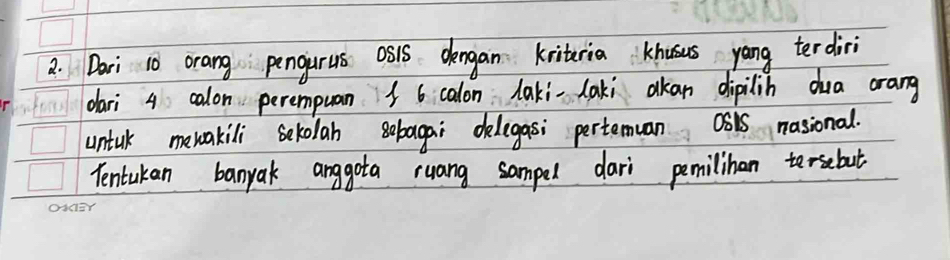 2. Dari 10 orang pengurus OSIS dengan kriteria khusus yang terdiri
dari 4 calon perempuan & 6 calon laki-laki akan dipilih dua orang
untuk mewakili sekolah sebagai delegasi pertemuan OSIS nasional.
Tentukan banyak anggota ruang sampel dari pemilihan tersebut
OKEY